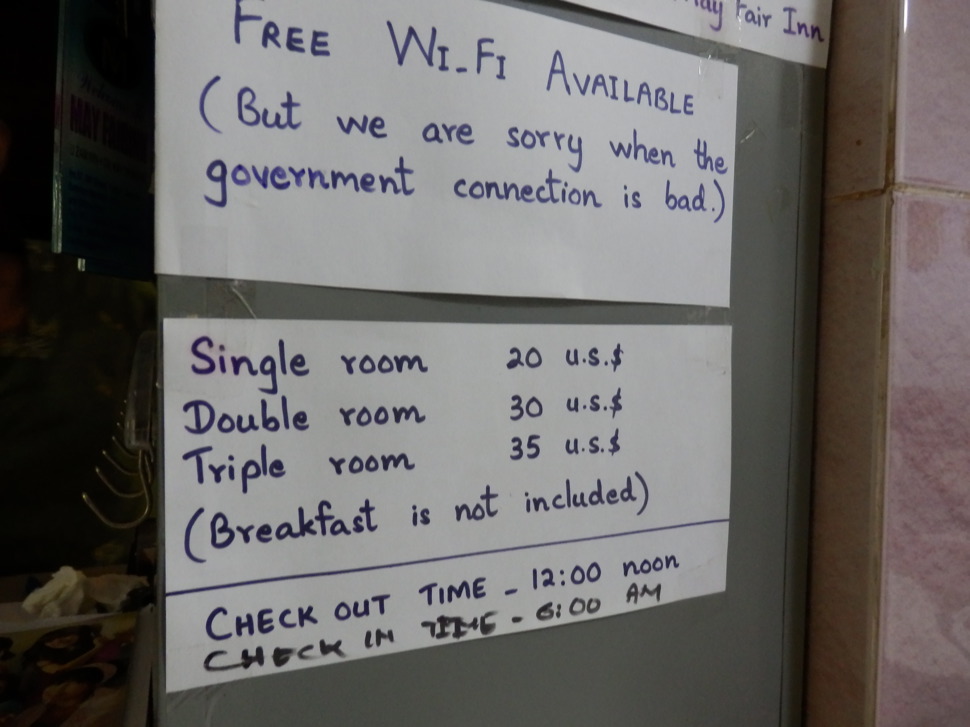 May Fair Inn
FREE WI-FI AVAILABLE
(But we are sorry when the
government connection is bad.)
Single room 20 u.s.$
Double room 30 u.s.$
Triple room 35 u.s.$
(Breakfast is not included)
CHECK OUT TIME - 12:00 noon
CHECK IN TIME - 6:00 AM